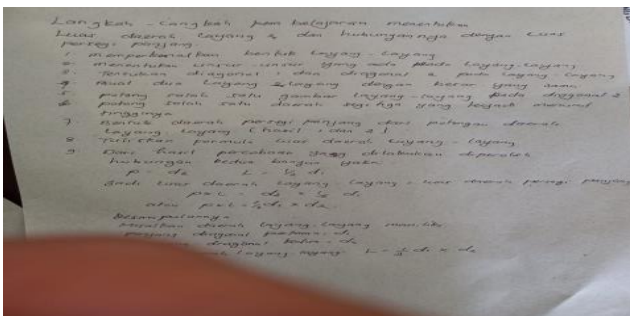 Langkah - Langkah pembelajaran menentukan
Luas daerah Layang 2 dan hubungannya dengan Luas
persegi panjang.
1. memperkenalkan bentuk Layang-Layang
2. menentukan unsur-unsur yang ada pada Layang-Layang
3. Tentukan diagonal 1 dan diagonal 2 pada Layang-Layang
4. Buat dua Layang 2 Layang dengan besar yang sama
5. potong salah satu gambar Layang-Layang pada diagonal 2
6. potong salah satu daerah segi tiga yang terjadi menurut
tingginya
7. Bentuk daerah persegi panjang dari potongan daerah
Layang-Layang (hasil 1 dan 2)
8. Tuliskan formula Luas daerah Layang-Layang
9. Dari hasil percobaan yang dilakukan diperoleh
hubungan kedua bangun yakni
p = d2 L = ½ d1
Jadi Luas daerah Layang-Layang = Luas daerah persegi panjang
p x L = d2 x ½ d1
atau p x L = ½ d1 x d2
Kesimpulannya
Misalkan daerah Layang-Layang memiliki
panjang diagonal pertama = d1
diagonal kedua = d2
Layang-Layang L = ½ d1 x d2